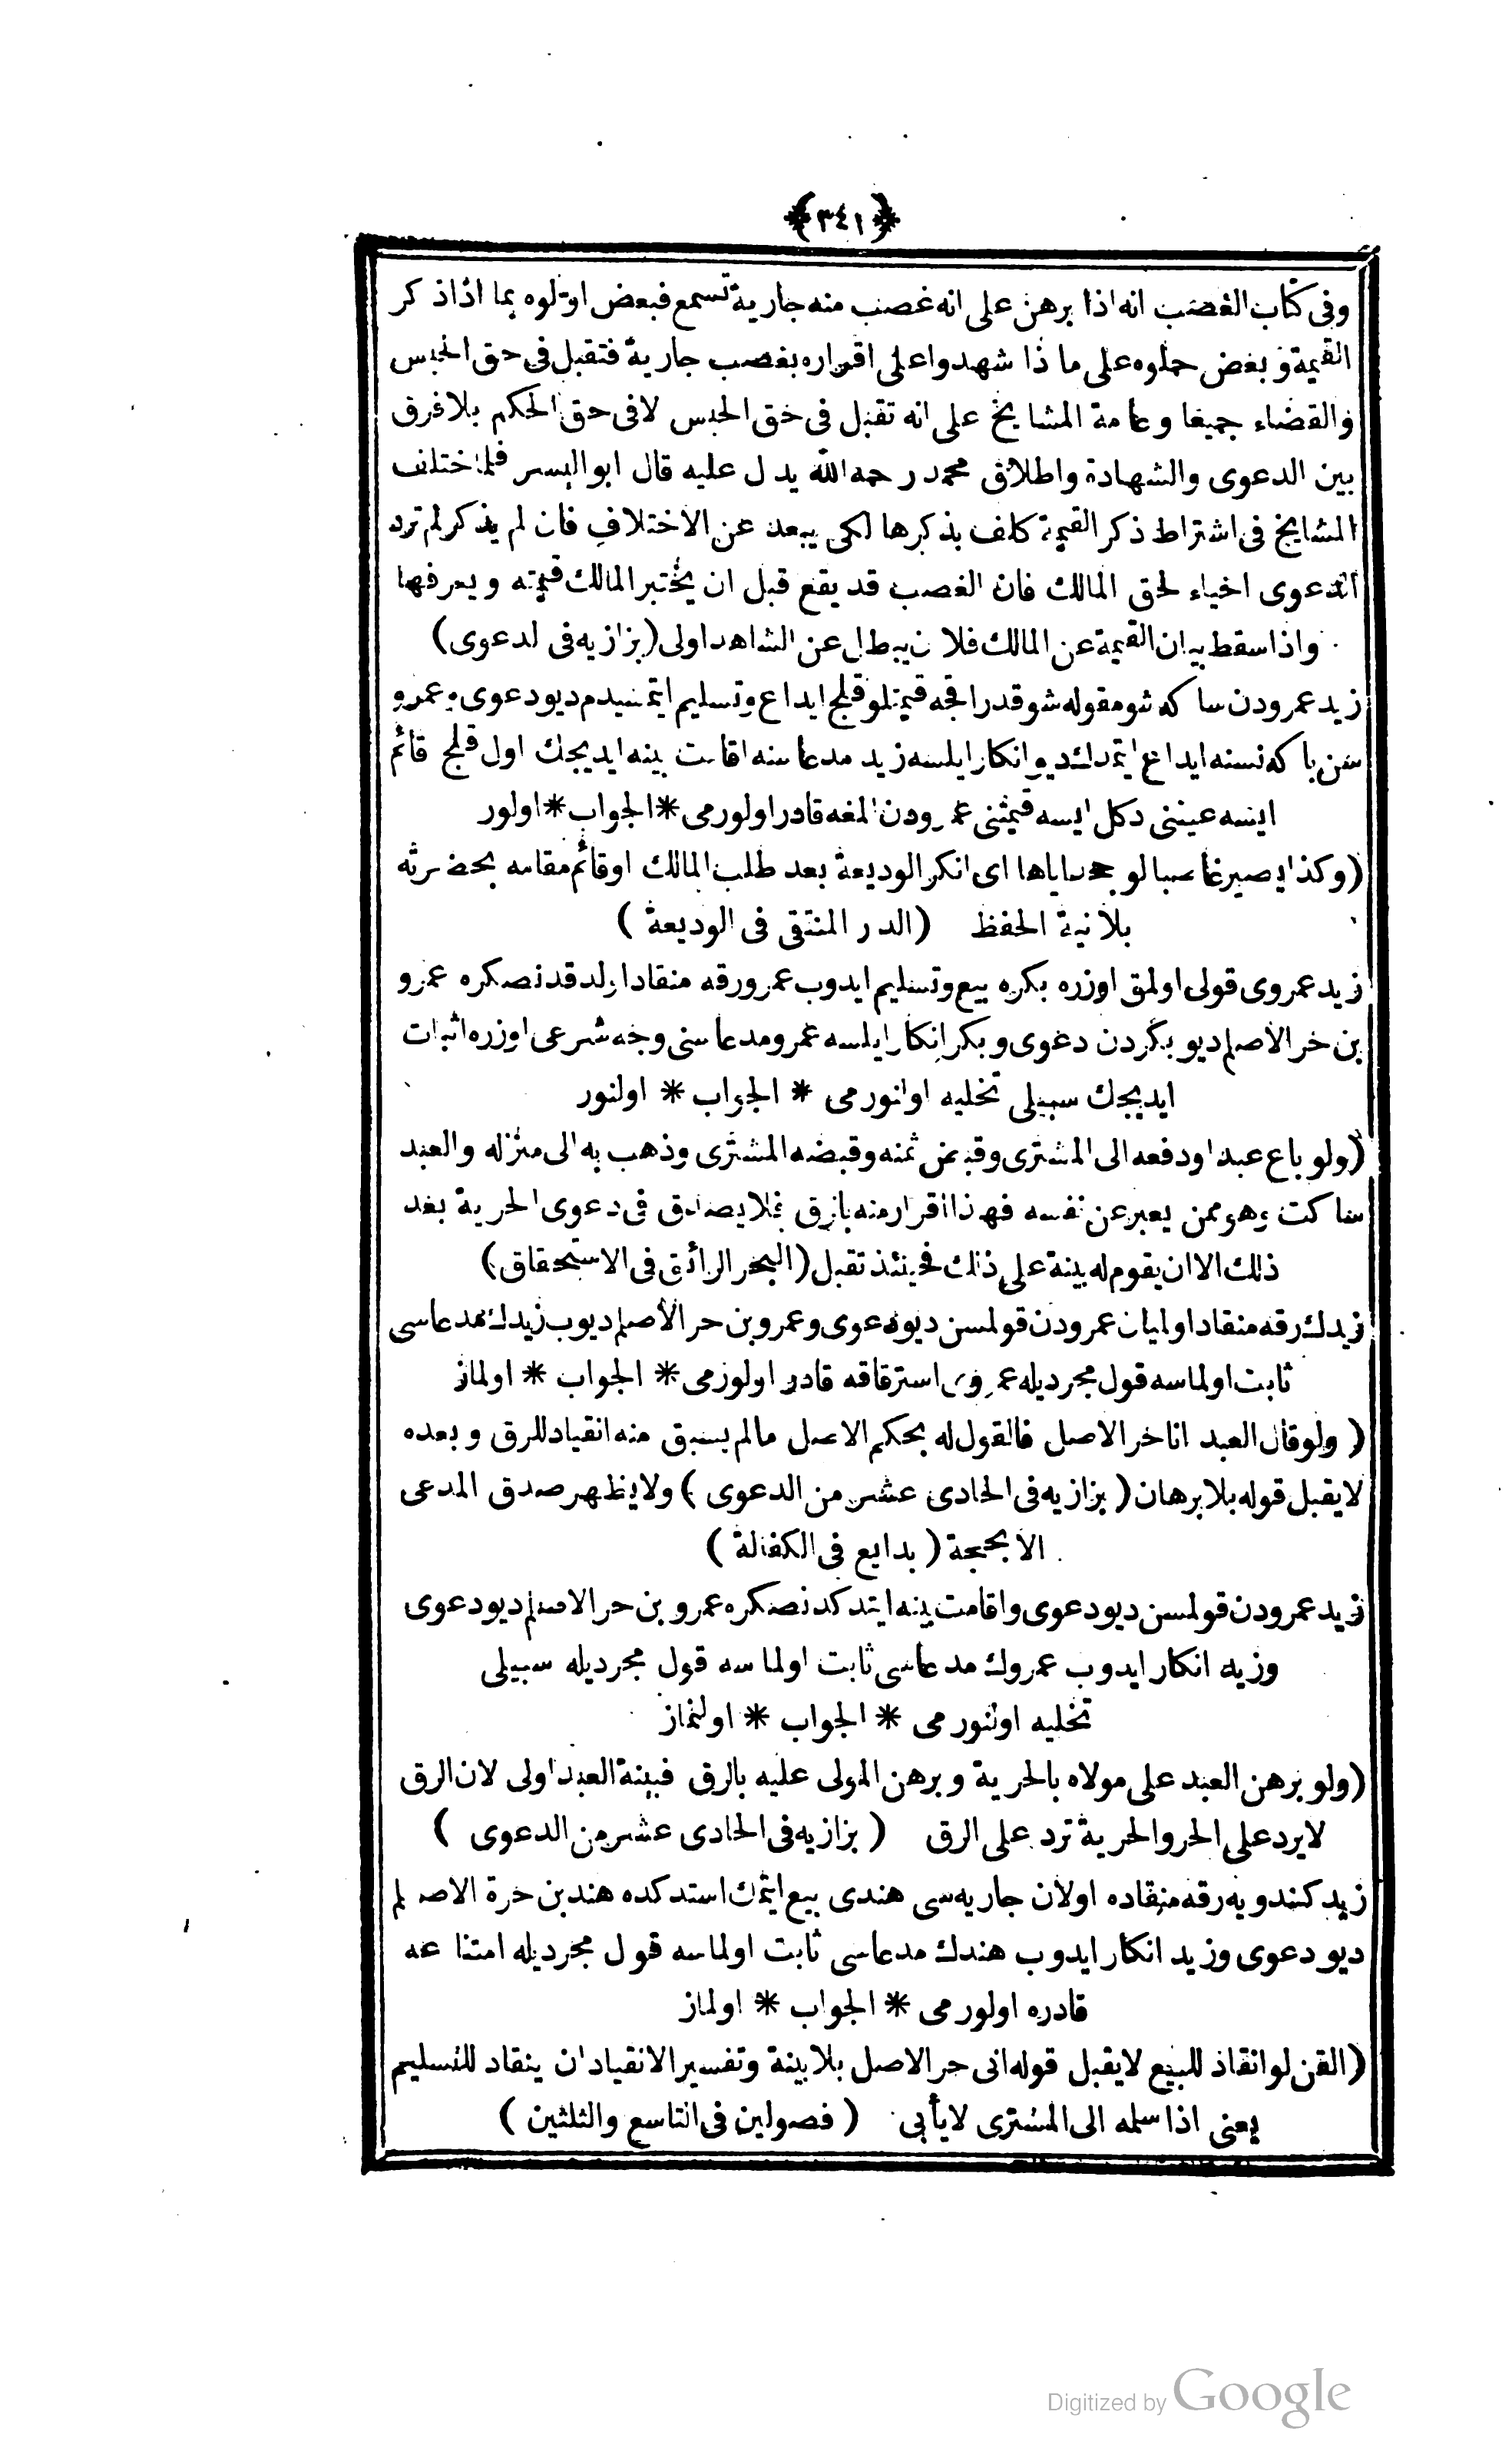 ﴿٣٤١﴾
وفى كتاب الغصب انه اذا برهن على انه غصب منه جارية تسمع فبعض اوّلوه بما اذا ذكر
القيمة وبعض حملوه على ما ذا شهدوا على اقراره بغصب جارية فتقبل فى حق الحبس
والقضاء جميعا وعامة المشايخ على انه تقبل فى حق الحبس لا فى حق الحكم بلا فرق
بين الدعوى والشهادة واطلاق محمد رحمه الله يدل عليه قال ابو اليسر فلما ختلف
المشايخ فى اشتراط ذكر القيمة كلف بذكرها لكى يبعد عن الاختلاف فان لم يذكر لم ترد
الدعوى احياء لحق المالك فان الغصب قد يقع قبل ان يختبر المالك قيمته ويعرفها
واذا سقط بيان القيمة عن المالك فلان يبطل عن الشاهد اولى (بزازيه فى لدعوى)
زيد عمرودن ساكه شو مقوله شو قدر اقجه قيمتلو قلج ايداع وتسليم ايتمشيدم ديو دعوى وعمرو
سن باكه نسنه ايداع ايتمدك ديو انكار ايلسه زيد مدعاسنه اقامت بينه ايديجك اول قلج قائم
ايسه عينى دكل ايسه قيمتنى عمرودن المغه قادر اولورمى * الجواب * اولور
(وكذا يصير غاصبا لو جحد اياها اى انكر الوديعة بعد طلب المالك او قائم مقامه بحضرته
بلا نية الحفظ (الدر المنتقى فى الوديعة)
زيد عمروى قولى اولمق اوزره بكره بيع وتسليم ايدوب عمرو رقه منقاد اولدقدنصكره عمرو
بن حر الاصلم ديو بكردن دعوى وبكر انكار ايلسه عمرو مدعاسنى وجه شرعى اوزره اثبات
ايديجك سبيلى تخليه اولنورمى * الجواب * اولنور
(ولو باع عبدا ودفعه الى المشترى وقبض ثمنه وقبضه المشترى وذهب به الى منزله والعبد
ساكت وهو ممن يعبر عن نفسه فهذا اقرار منه بالرق فلا يصدق فى دعوى الحرية بعد
ذلك الا ان يقوم له بينة على ذلك فحينئذ تقبل (البحر الرائق فى الاستحقاق)
زيدك رقه منقاد اوليان عمرودن قولمسن ديو دعوى وعمرو بن حر الاصلم ديوب زيدك مدعاسى
ثابت اولماسه قول مجرديله عمروى استرقاقه قادر اولورمى * الجواب * اولماز
(ولو قال العبد انا حر الاصل فالقول له بحكم الاصل مالم يسبق منه انقياد للرق وبعده
لا يقبل قوله بلا برهان (بزازيه فى الحادى عشر من الدعوى) ولا يظهر صدق المدعى
الا بحجة (بدايع فى الكفالة)
زيد عمرودن قولمسن ديو دعوى واقامت بينه ايتدكدنصكره عمرو بن حر الاصلم ديو دعوى
وزيد انكار ايدوب عمروك مدعاسى ثابت اولماسه قول مجرديله سبيلى
تخليه اولنورمى * الجواب * اولنماز
(ولو برهن العبد على مولاه بالحرية وبرهن المولى عليه بالرق فبينة العبد اولى لان الرق
لا يرد على الحر والحرية ترد على الرق (بزازيه فى الحادى عشر من الدعوى)
زيد كندويه رقه منقاده اولان جاريه سى هندى بيع ايتمك استدكده هند بن حرة الاصلم
ديو دعوى وزيد انكار ايدوب هندك مدعاسى ثابت اولماسه قول مجرديله امتناعه
قادره اولورمى * الجواب * اولماز
(القن لو انقاد للبيع لا يقبل قوله انى حر الاصل بلا بينة وتفسير الانقياد ان ينقاد للتسليم
يعنى اذا سلمه الى المشترى لا يأبى (فصولين فى التاسع والثلثين)
Digitized by Google